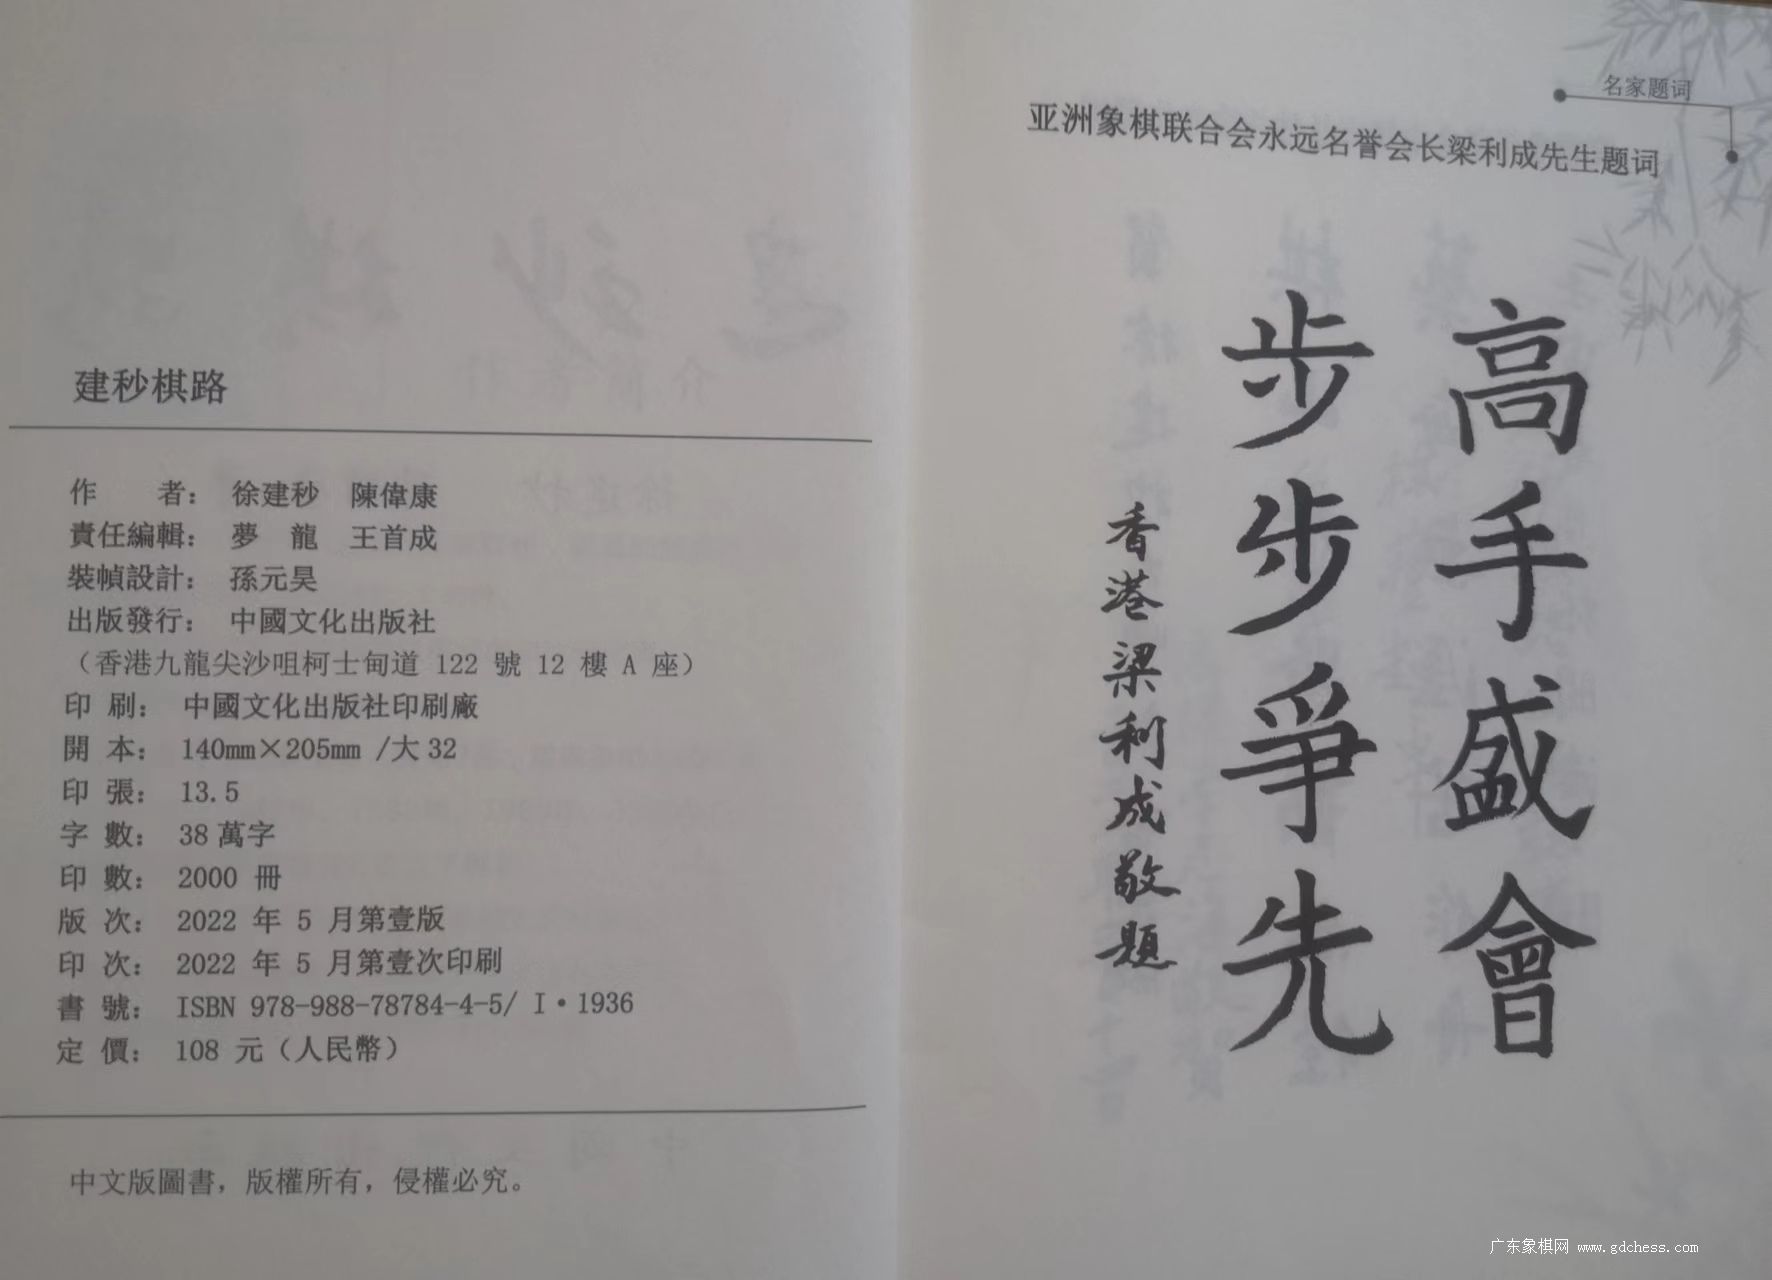 建秒棋路
作　　者： 徐建秒　陳偉康
責任編輯： 夢　龍　王首成
裝幀設計： 孫元昊
出版發行： 中國文化出版社
（香港九龍尖沙咀柯士甸道 122 號 12 樓 A 座）
印 刷： 中國文化出版社印刷廠
開 本： 140mm×205mm /大 32
印 張： 13.5
字 數： 38 萬字
印 數： 2000 冊
版 次： 2022 年 5 月第壹版
印 次： 2022 年 5 月第壹次印刷
書 號： ISBN 978-988-78784-4-5/ I·1936
定 價： 108 元（人民幣）
中文版圖書，版權所有，侵權必究。
名家题词
亚洲象棋联合会永远名誉会长梁利成先生题词
高手盛會
步步爭先
香港梁利成敬題
广东象棋网 www.gdchess.com